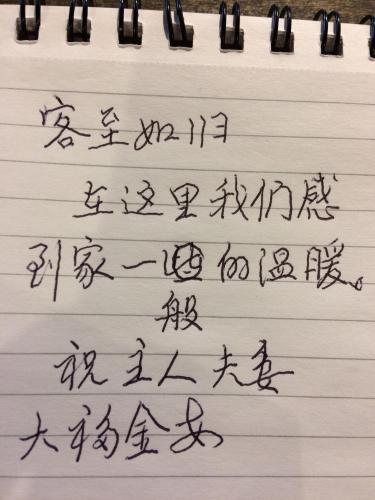 客至如归
在这里我们感
到家一般的温暖。
祝主人夫妻
大福金安